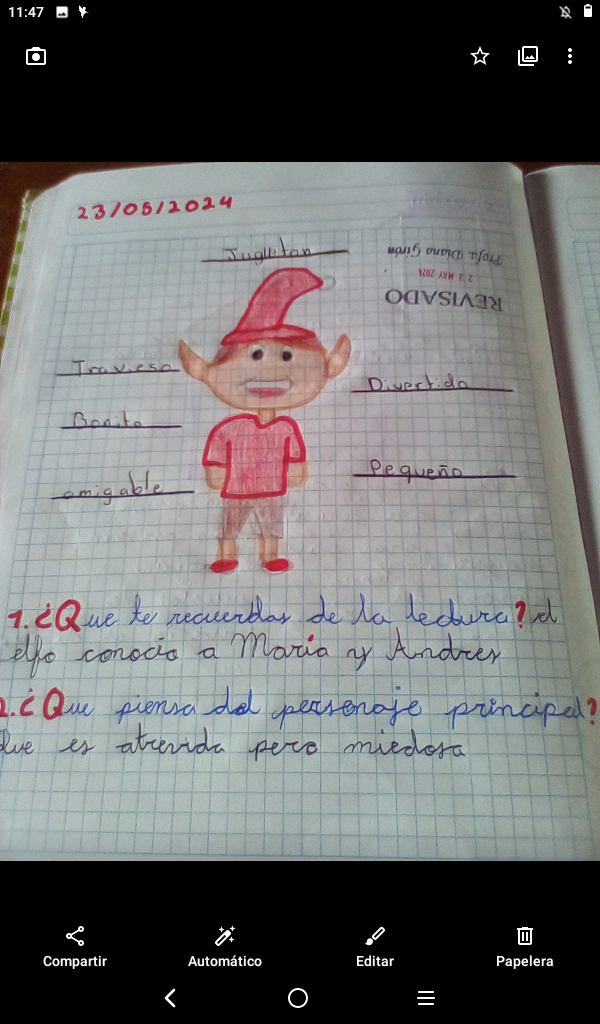 11:47
23/05/2024
Jugueton
Profa Diana Girón
23 MAY 2024
REVISADO
Travieso
Divertido
Bonito
Pequeño
amigable
1. ¿Que te recuerdas de la lectura? el
elfo conocio a Maria y Andres
2. ¿Que piensa del personaje principal?
Que es atrevida pero miedosa
Compartir
Automático
Editar
Papelera